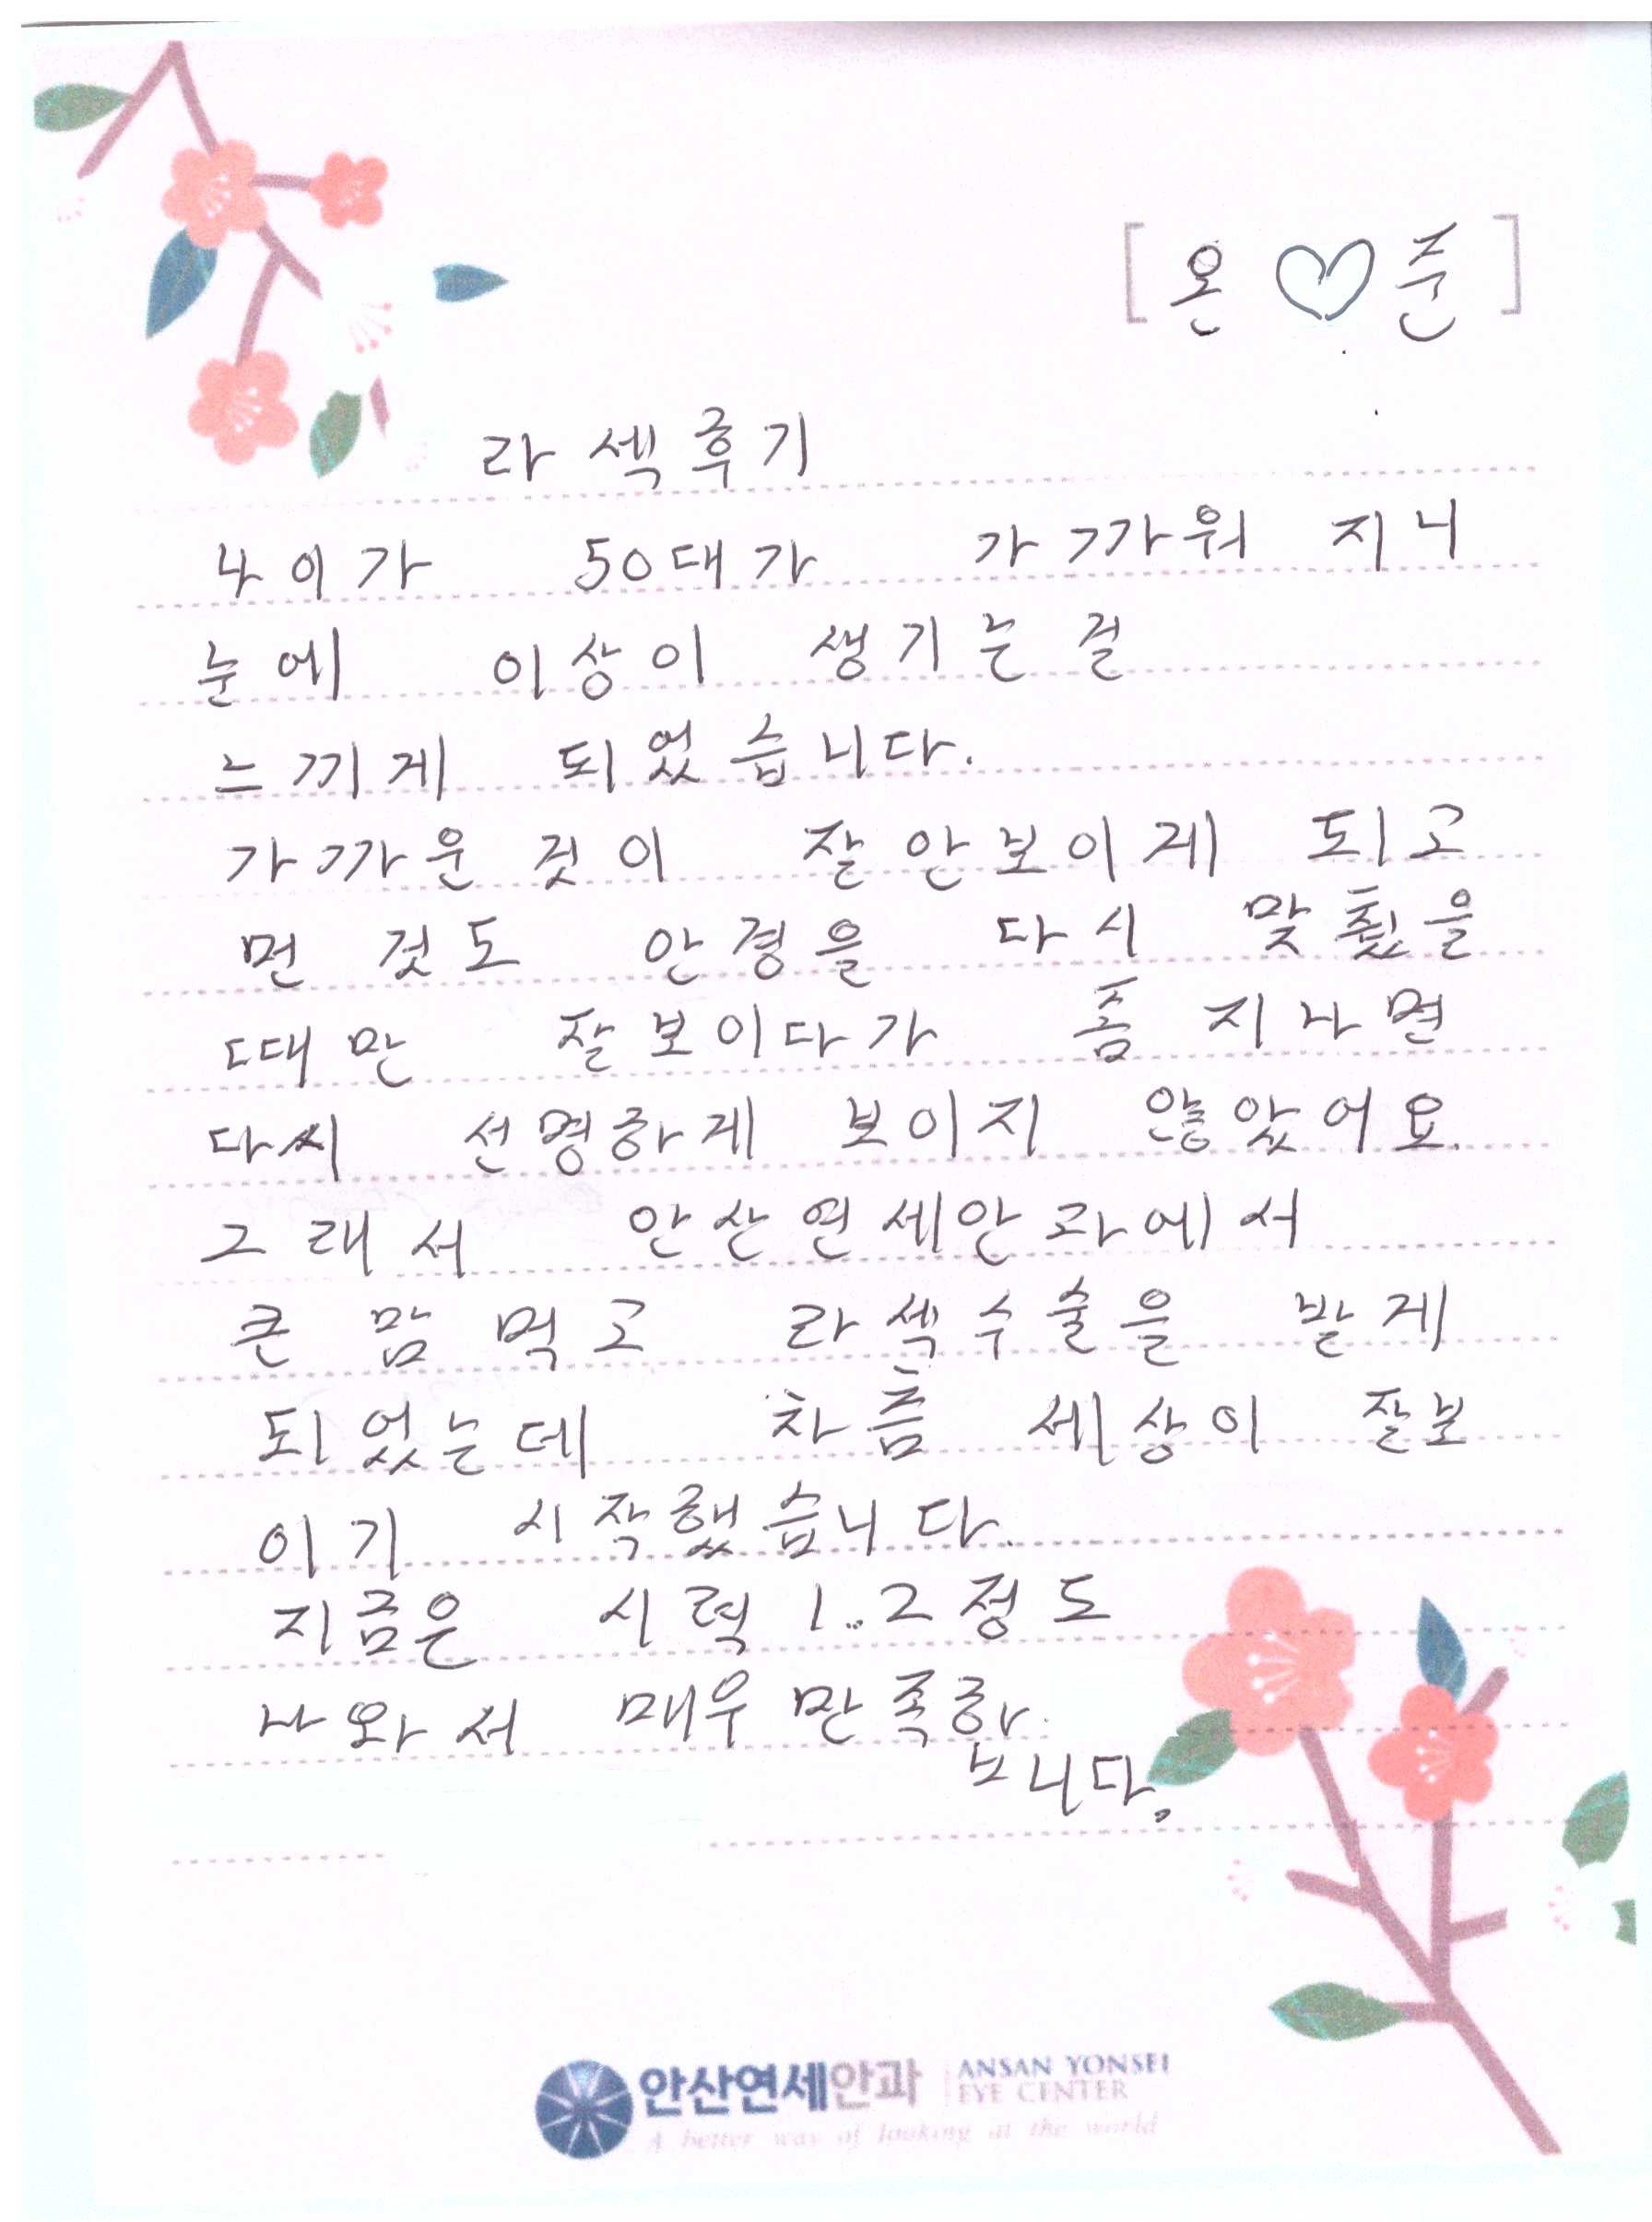 [ 온 ♡ 준 ]
라섹후기
나이가 50대가 가까워 지니
눈에 이상이 생기는 걸
느끼게 되었습니다.
가까운 것이 잘 안보이게 되고
먼 것도 안경을 다시 맞췄을
때만 잘보이다가 좀 지나면
다시 선명하게 보이지 않았어요.
그래서 안산연세안과에서
큰 맘 먹고 라섹수술을 받게
되었는데 차츰 세상이 잘보
이기 시작했습니다.
지금은 시력 1.2 정도
나와서 매우 만족하
ㅂ니다.
안산연세안과 ANSAN YONSEI
EYE CENTER
A better way of looking at the world